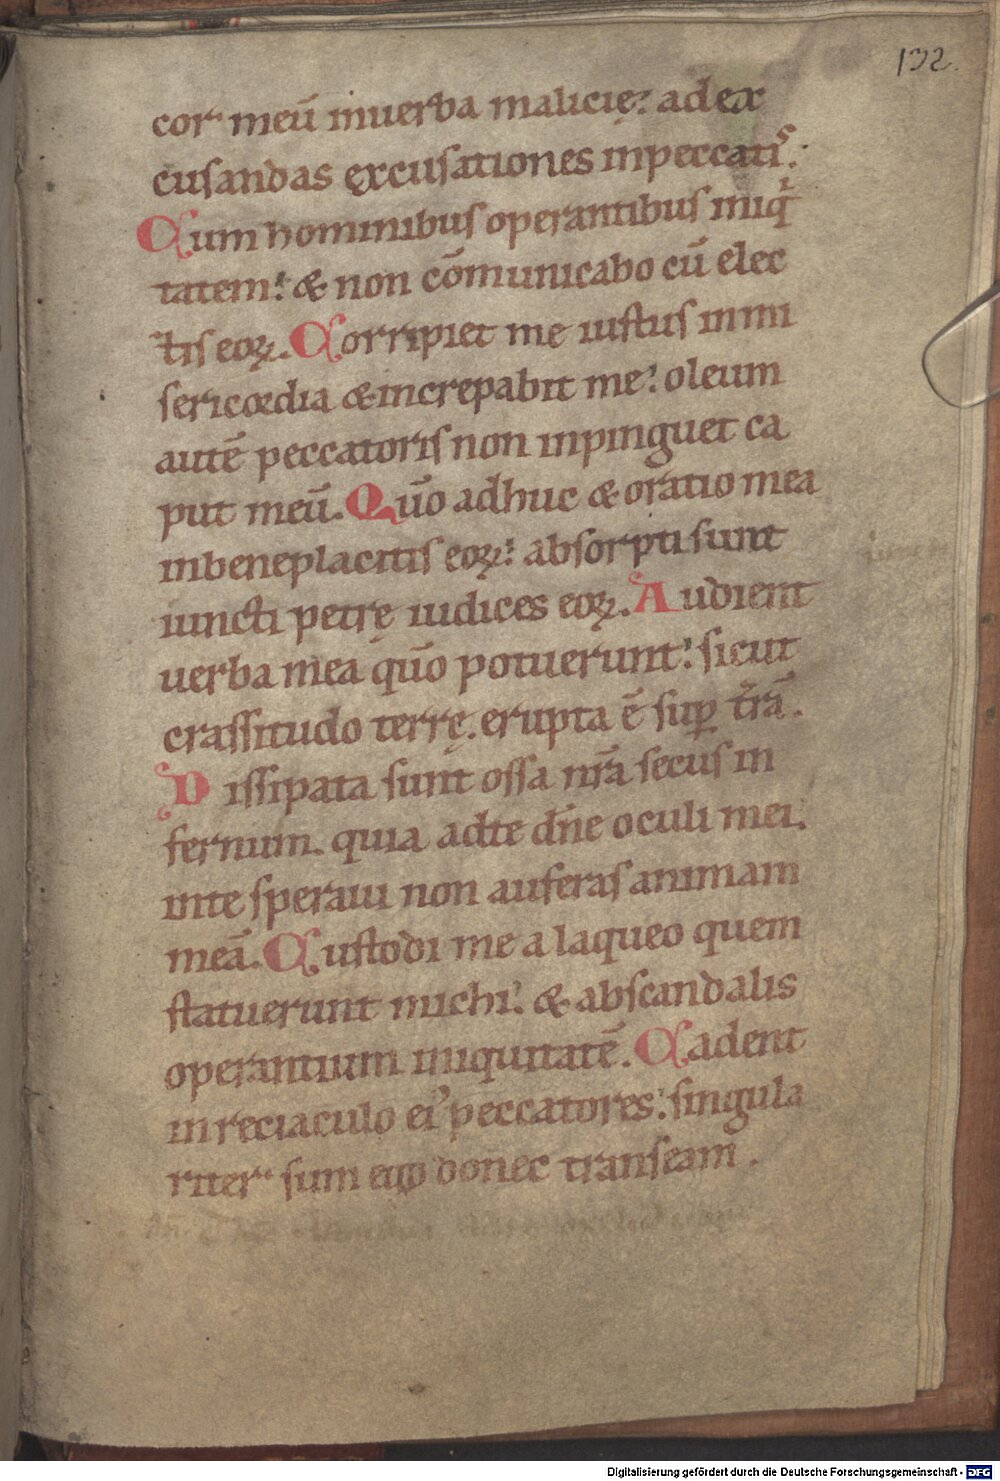 132.
cor meū inuerba malicię: adex
cusandas excusationes inpeccatis.
Cum hominibus operantibus iniqi
tatem: & non cōmunicabo cū elec
tis eoꝝ. Corripiet me iustus inmi
sericordia & increpabit me: oleum
autē peccatoris non inpinguet ca
put meū. Qūo adhuc & oratio mea
inbeneplacitis eoꝝ: absorpti sunt
iuncti petrę iudices eoꝝ. Audient
uerba mea qūo potuerunt: sicut
crassitudo terrę. erupta ē suꝑ t̄rā.
Dissipata sunt ossa nr̄a secus in
fernum. quia adte dn̄e oculi mei.
inte speraui non auferas animam
meā. Custodi me a laqueo quem
statuerunt michi: & abscandalis
operantium iniquitatē. Cadent
inreciaculo ei᾿ peccatores: singula
riter sum ego donec transeam.
Digitalisierung gefördert durch die Deutsche Forschungsgemeinschaft - DFG